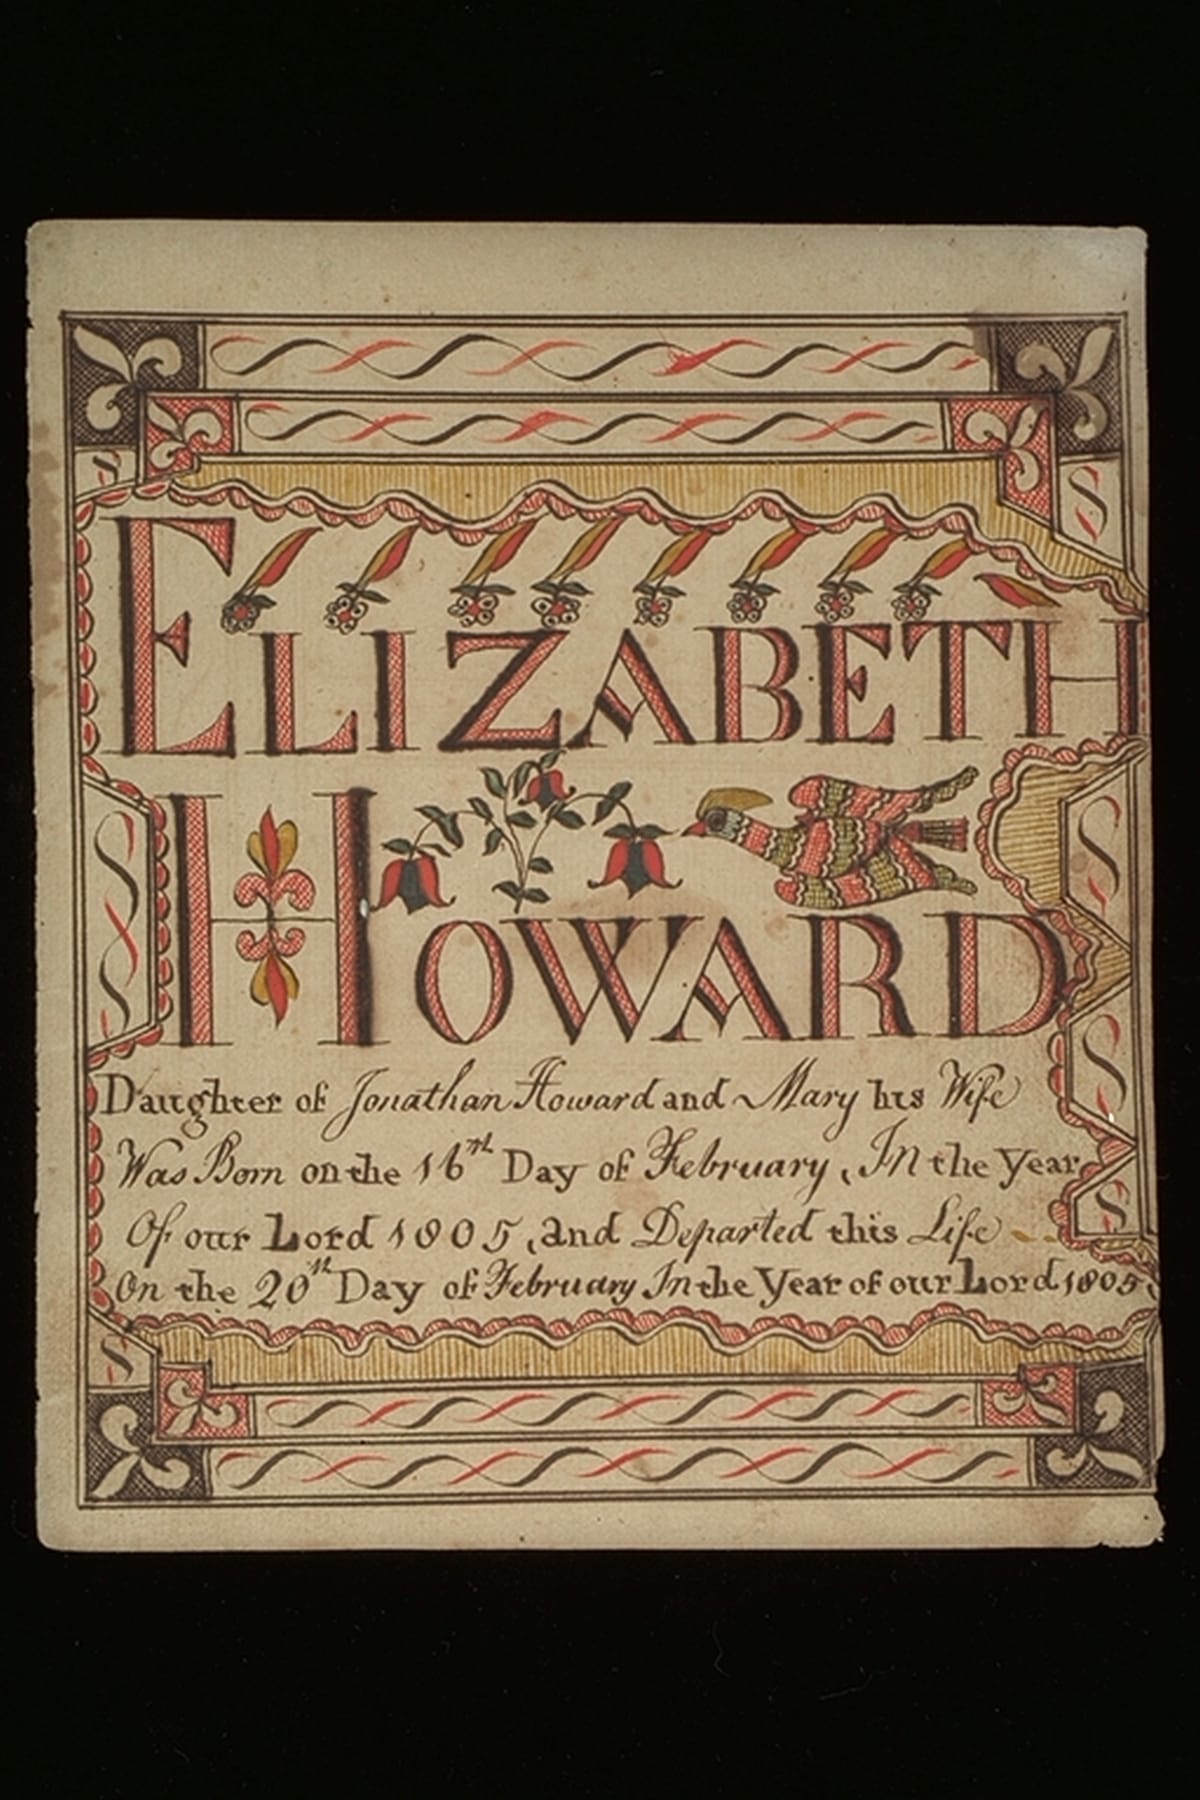 ELIZABETH
HOWARD
Daughter of Jonathan Howard and Mary his Wife
Was Born on the 16th Day of February, In the Year
Of our Lord 1805, and Departed this Life
On the 20th Day of February In the Year of our Lord 1805